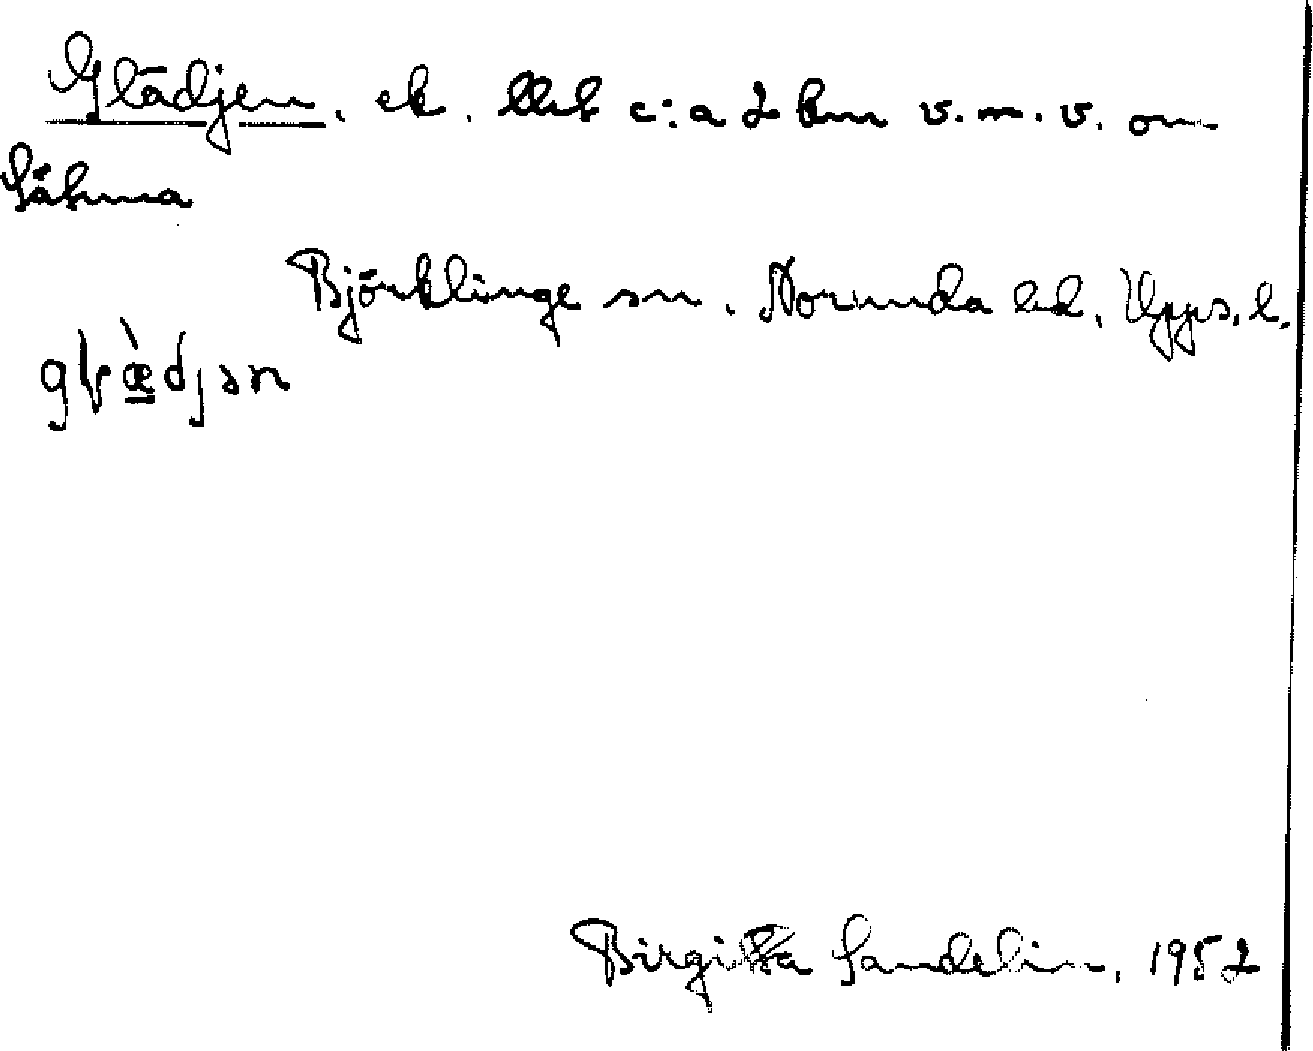 Glädjen, ek. Ubt c:a 2 km v.m.v. om
Såhma
Björklinge sn. Norunda hd. Upps. l.
glæ̀djən
Birgitta Sandelin, 1952